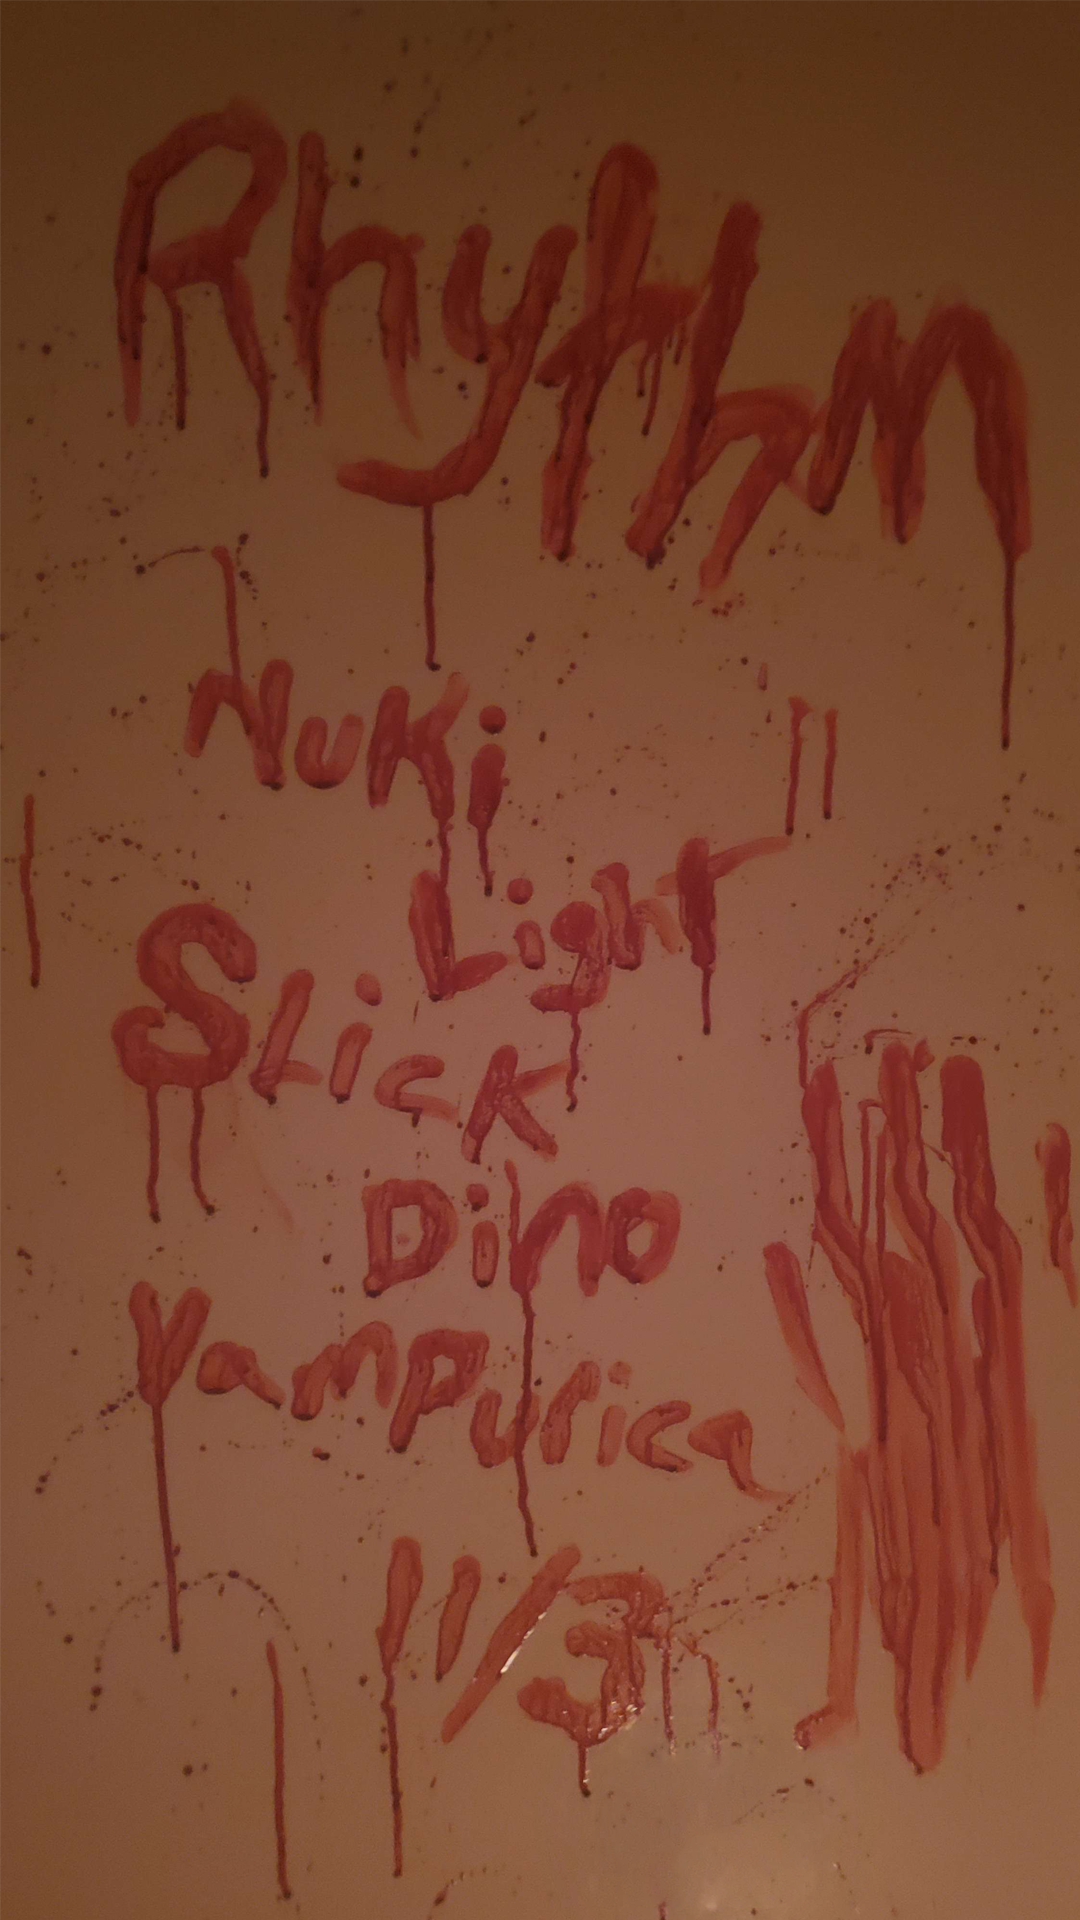 Rhythm
Nuki
Light
Slick
Dino
Vampurica
11/3